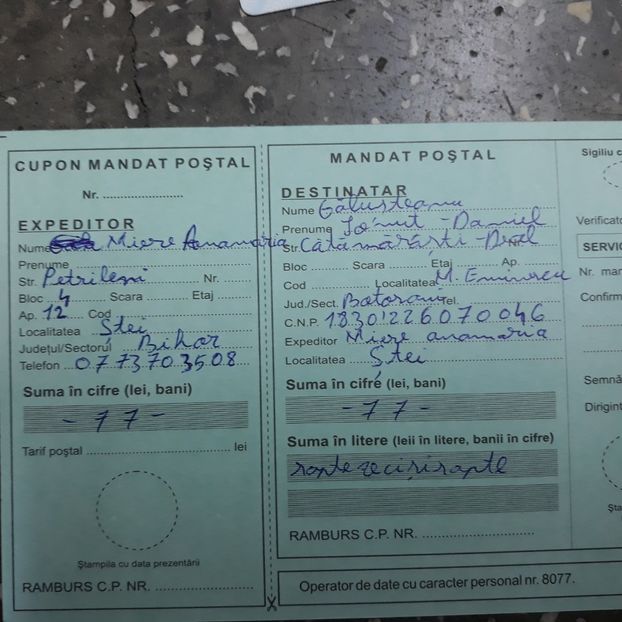 CUPON MANDAT POŞTAL
Nr. ........................
EXPEDITOR
Nume Miere Anamaria
Prenume
Str. Petrileni Nr.
Bloc 4 Scara Etaj
Ap. 12 Cod
Localitatea Ştei
Judeţul/Sectorul Bihor
Telefon 0773703508
Suma în cifre (lei, bani)
- 77 -
Tarif poştal lei
Ştampila cu data prezentării
RAMBURS C.P. NR.
MANDAT POŞTAL
DESTINATAR
Nume Găluşteanu
Prenume Ionut - Daniel
Str. Cătămărăşti - Deal
Bloc Scara Etaj Ap.
Cod Localitatea M. Eminescu
Jud./Sect. Botosani Tel.
C.N.P. 1830226070046
Expeditor Miere anamaria
Localitatea Ştei
Suma în cifre (lei, bani)
- 77 -
Suma în litere (leii în litere, banii în cifre)
sapte zeci si sapte
RAMBURS C.P. NR.
Operator de date cu caracter personal nr. 8077.
Sigiliu
SERVIC
Nr.